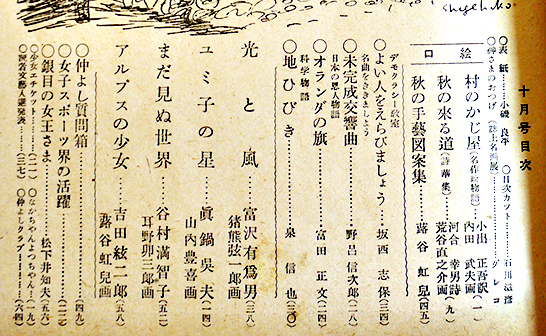 Shigehiko
十月号目次
○表紙……小磯良平
○目次カット……石川滋彦
○神さまのおつげ(誌上名画展)……グレコ
口絵
村のかじ屋(名作絵物語)
小出正吾訳
内田武夫画(一)
秋の来る道(詩画集)
河合幸男詩
荒谷直之介画(九)
秋の手藝図案集……蕗谷虹兒(四五)
デモクラシー教室
○よい人をえらびましょう……坂西志保(三四)
名曲をききましょう
○未完成交響曲……野呂信次郎(二八)
日本の恩人物語
○オランダの旗……富田正文(二四)
科学物語
○地ひびき……泉信也(三〇)
光と風……富沢有為男
猪熊弦一郎画(三八)
ユミ子の星……眞鍋呉夫(一四)
山内豊喜画
まだ見ぬ世界……谷村満智子(五二)
耳野卯三郎画
アルプスの少女……吉田絃二郎(五八)
蕗谷虹兒画
○仲よし質問箱……(四九)
○女子スポーツ界の活躍……(二二)
○銀目の女王さま……松下井知夫(五六)
○少女エチケット……(二一)
○なかちゃんよっちゃん……(一九)
○読者文藝入選発表……(三七)
○仲よしクラブ……(六四)